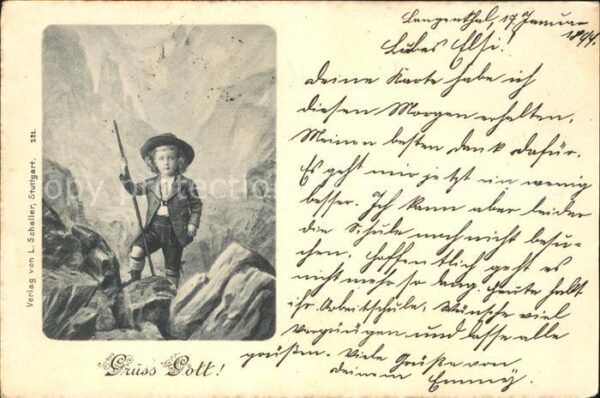 Langenthal, 17. Januar
1899.
Liebes Elsi!
Deine Karte habe ich
diesen Morgen erhalten.
Meinen besten Dank dafür.
Es geht mir jetzt ein wenig
besser. Ich kann aber leider
die Schule noch nicht besu-
chen. Hoffentlich geht es
nicht mehr so lang. Heute habt
ihr Arbeitschule, Wünsche viel
Vergnügen und lasse alle
grüßen. Viele Grüße von
deinem Emmy.
Gruss Gott!
Verlag von L. Schaller, Stuttgart. 221.